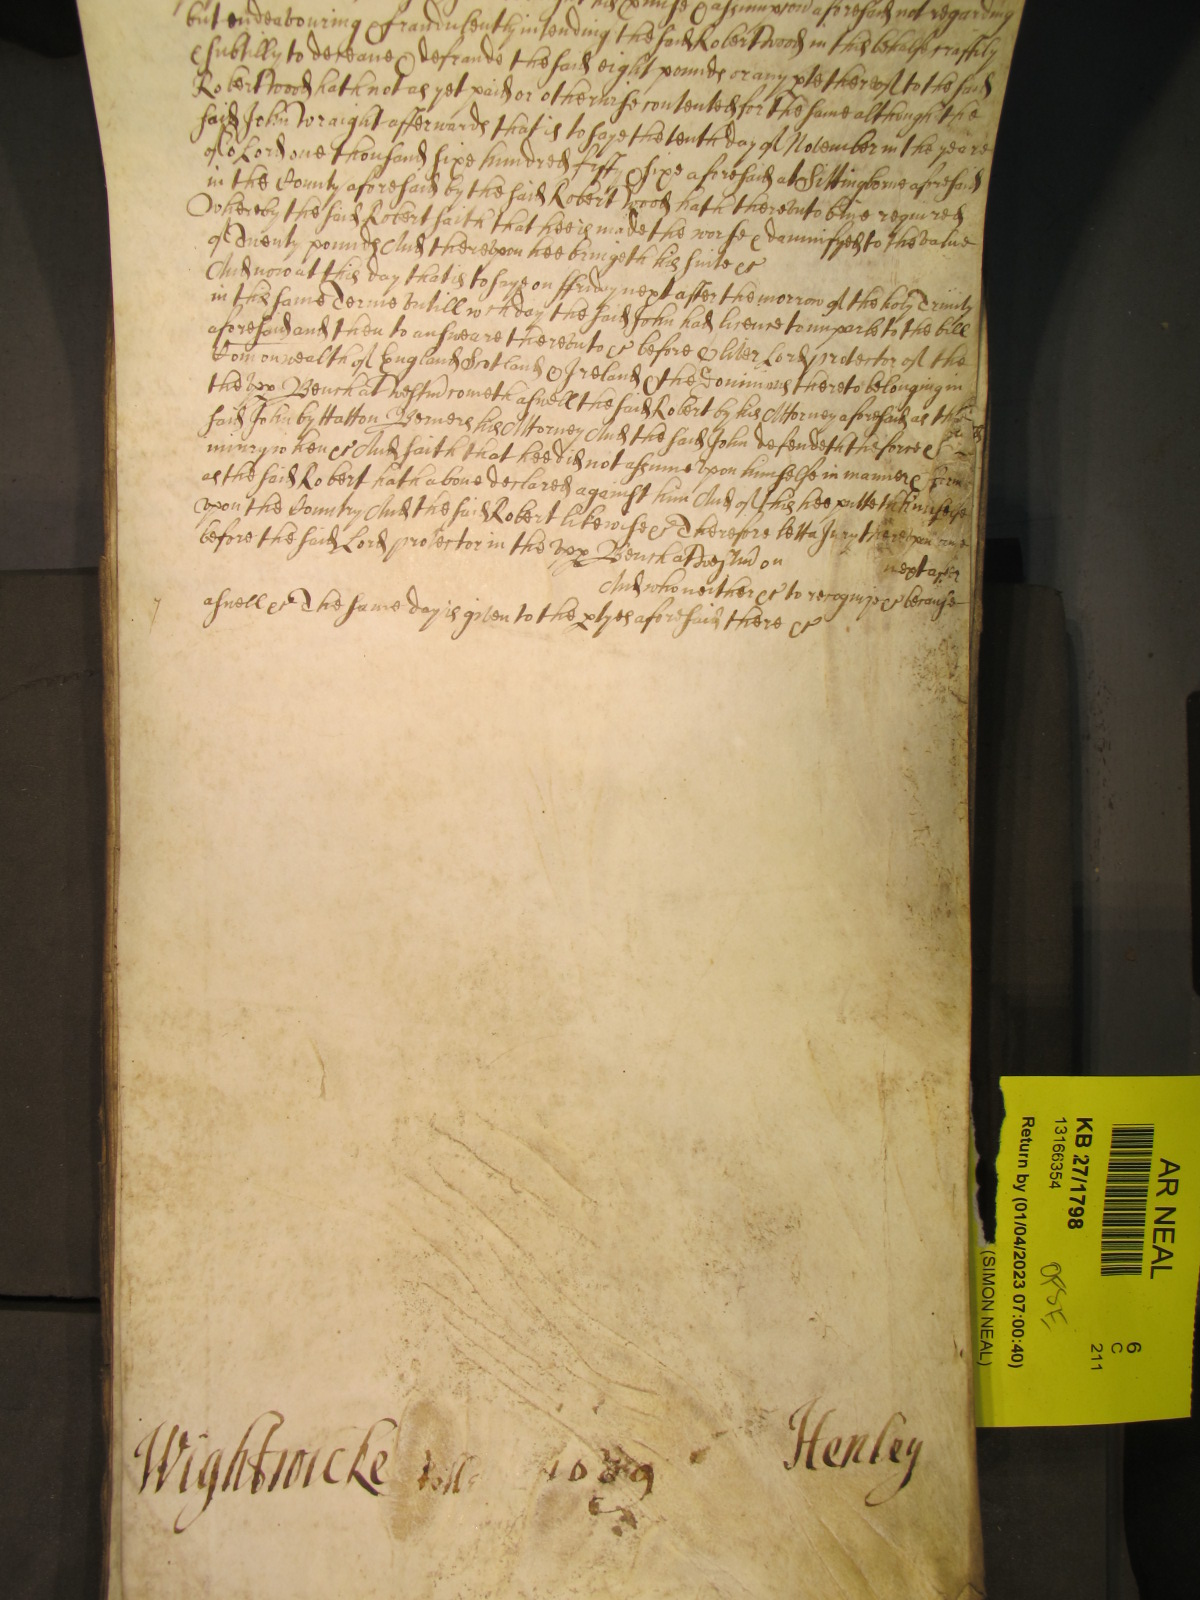 his promise & assumpcon aforesaid not regarding
but endeavouring & fraudulently intending the said Robert Wood in this behalfe craftily
& subtilly to deceave & defraude the said eight pounds or any pte thereof to the said
Robert Wood hath not as yet paid or otherwise contented for the same although the
said John Wraight afterwards that is to saye the tenth day of November in the yeare
of oe Lord one thousand sixe hundred fyfty & sixe aforesaid at Sittingborne aforesaid
in the County aforesaid by the said Robert Wood hath thereunto bine required
Whereby the said Robert saith that hee is made the worse & damnifyed to the value
of Twenty pounds And thereupon hee bringeth his suite &c
And now at this day that is to saye on ffriday next after the morrow of the holy Trinity
in this same Terme Vntill wch day the said John had licence to imparle to the bill
aforesaid and then to answeare thereunto &c before Oliver Lord protector of the
Comonwealth of England Scotland & Ireland & the Dominions thereto belonging in
the vpp Bench at Westm cometh aswell the said Robert by his Attorney aforesaid as the
said John by Hatton Berners his Attorney And the said John defendeth the force &
iniury when &c And saith that hee did not assume vpon himselfe in manner & forme
as the said Robert hath above declared against him And of this hee putteth himselfe
vpon the Country And the said Robert likewise &c Therefore lett a Jury thereupon come
before the said Lord protector in the vpp Bench at Westm on next after
And who neither &c to recognize &c because
aswell &c The same day is given to the ptyes aforesaid there &c
Wightwicke Rolle 1089 Henley
AR NEAL
KB 27/1798
13166354
Return by (01/04/2023 07:00:40)
(SIMON NEAL)
6
C
211